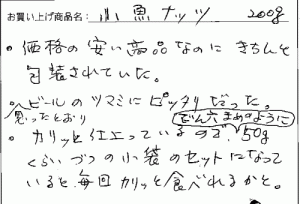 お買い上げ商品名： 小魚ナッツ 200g
・価格の安い高品なのにきちんと
包装されていた。
・ビールのツマミにピッタリだった。
思ったとおり
でん六まめのように
・カリッと仕上っているので、50g
くらいづつの小袋のセットになって
いると、毎回カリッと食べれるかと。